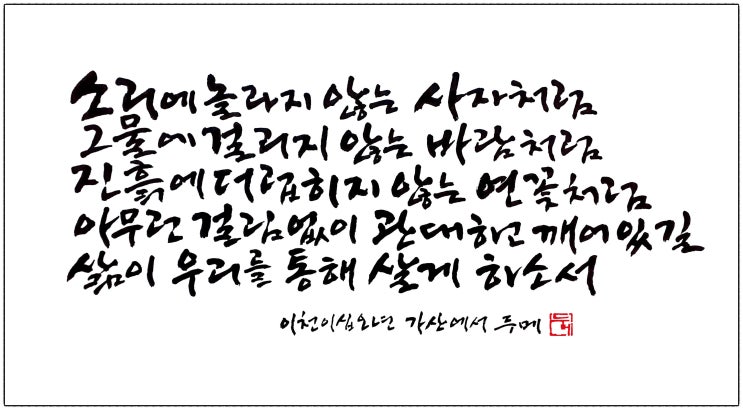 소리에 놀라지 않는 사자처럼
그물에 걸리지 않는 바람처럼
진흙에 더럽히지 않는 연꽃처럼
아무런 걸림없이 관대하고 깨어있길
삶이 우리를 통해 살게 하소서
이천이십오년 가산에서 두메
두메